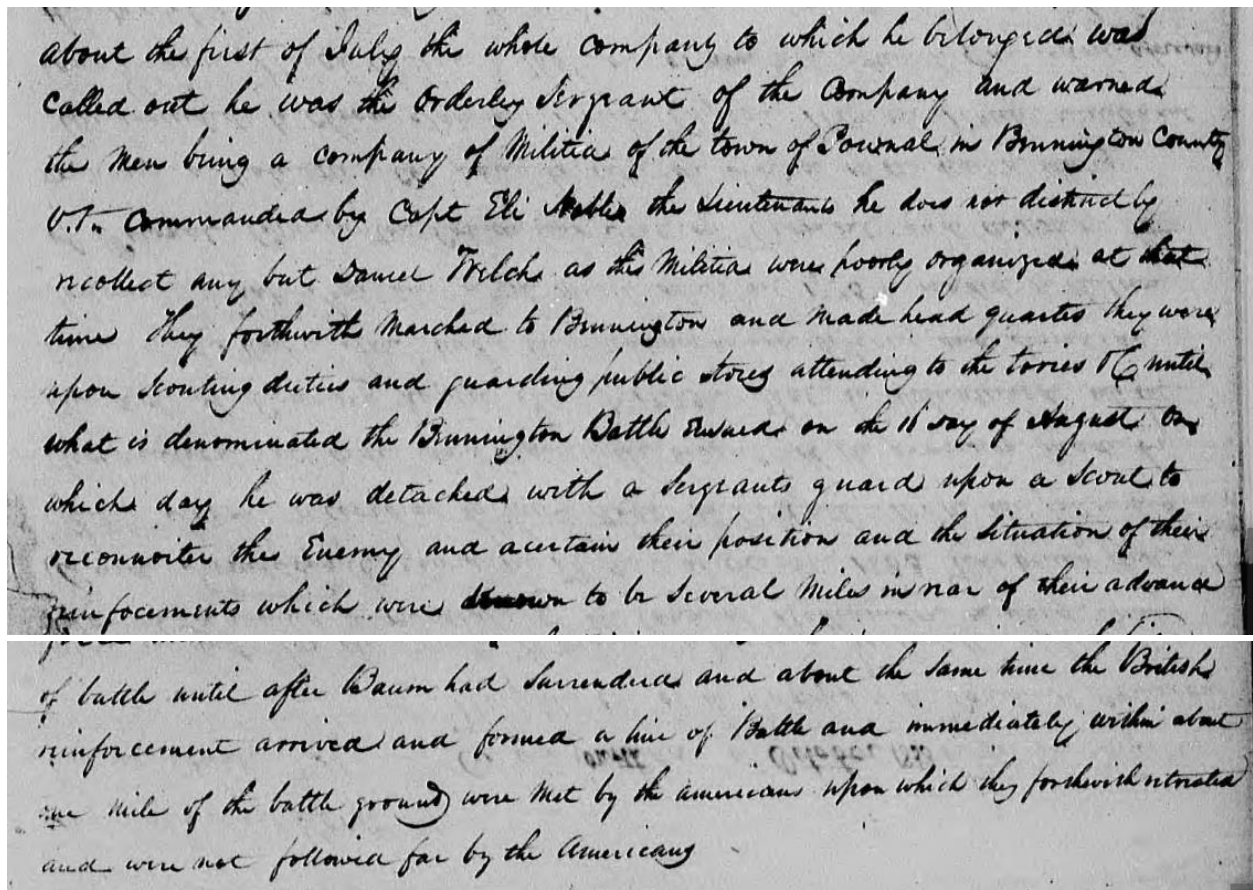 about the first of July the whole company to which he belonged was
called out he was the orderley Sergeant of the Company and warned
the men being a company of Militia of the town of Pownal in Bennington County
V.T. commanded by Capt Eli Noble the Lieutenants he does not distinctly
recollect any but Daniel Welch as the Militia were poorly organized at that
time They forthwith marched to Bennington and made head quarters they were
upon scouting duties and guarding public stores attending to the tories &c until
what is denominated the Bennington Battle Ensued on the 16 day of August On
which day he was detached with a Sergeants guard upon a scout to
reconnoiter the Enemy and acertain their position and the situation of their
reinfocements which were known to be several miles in rear of their advance
of battle until after Baum had surrenderd and about the same time the British
reinforcement arrived and formed a line of Battle and immediately within about
one mile of the battle ground) were met by the americans upon which they forthwith retreated
and were not followed far by the Americans